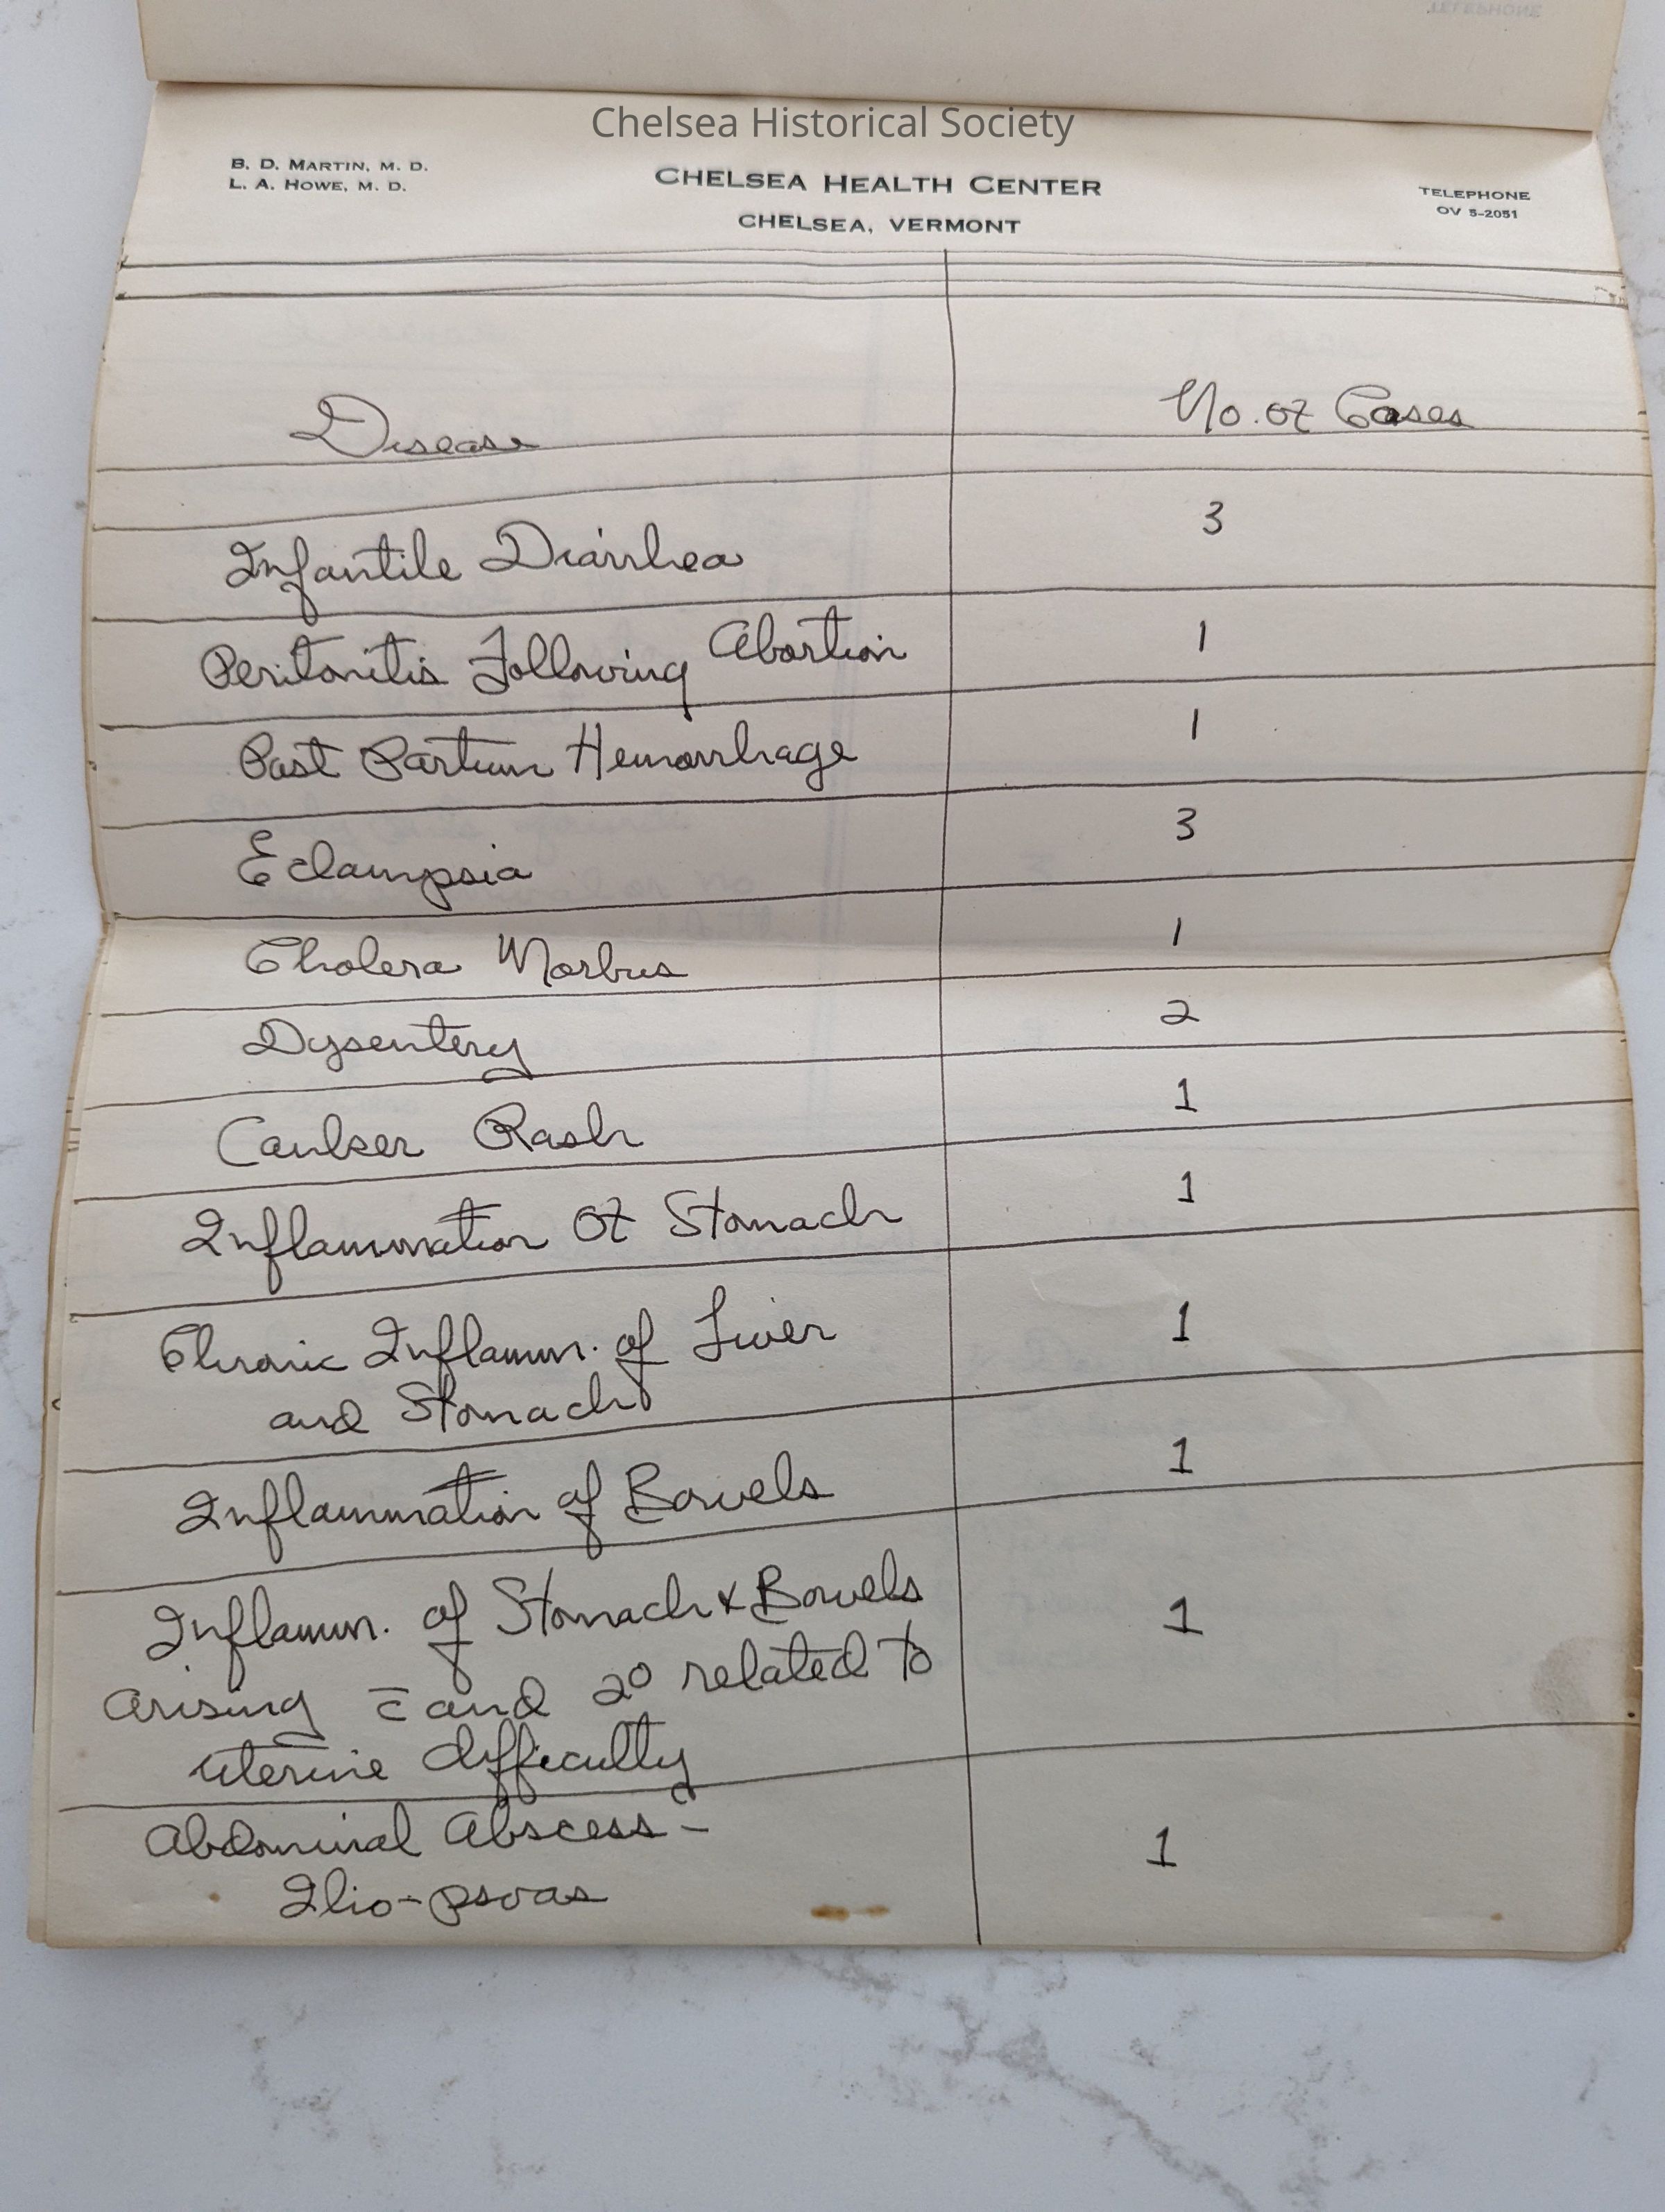 TELEPHONE
Chelsea Historical Society
B. D. MARTIN, M. D.
L. A. HOWE, M. D.
CHELSEA HEALTH CENTER
CHELSEA, VERMONT
TELEPHONE
OV 5-2051
Disease No. of Cases
Infantile Diarrhea 3
Peritonitis Following Abortion 1
Post Partum Hemorrhage 1
Eclampsia 3
Cholera Morbus 1
Dysentery 2
Canker Rash 1
Inflammation Of Stomach 1
Chronic Inflamm. of Liver 1
and Stomach
Inflammation of Bowels 1
Inflamm. of Stomach & Bowels 1
arising c̄ and 2° related to
uterine difficulty
Abdominal Abscess -
Ilio-psoas 1